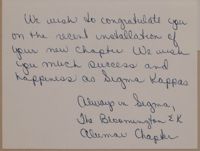 We wish to congratulate you
on the recent installation of
your new chapter. We wish
you much success and
happiness as Sigma Kappas
Always in Sigma,
The Bloomington ΣK
Alumnae Chapter